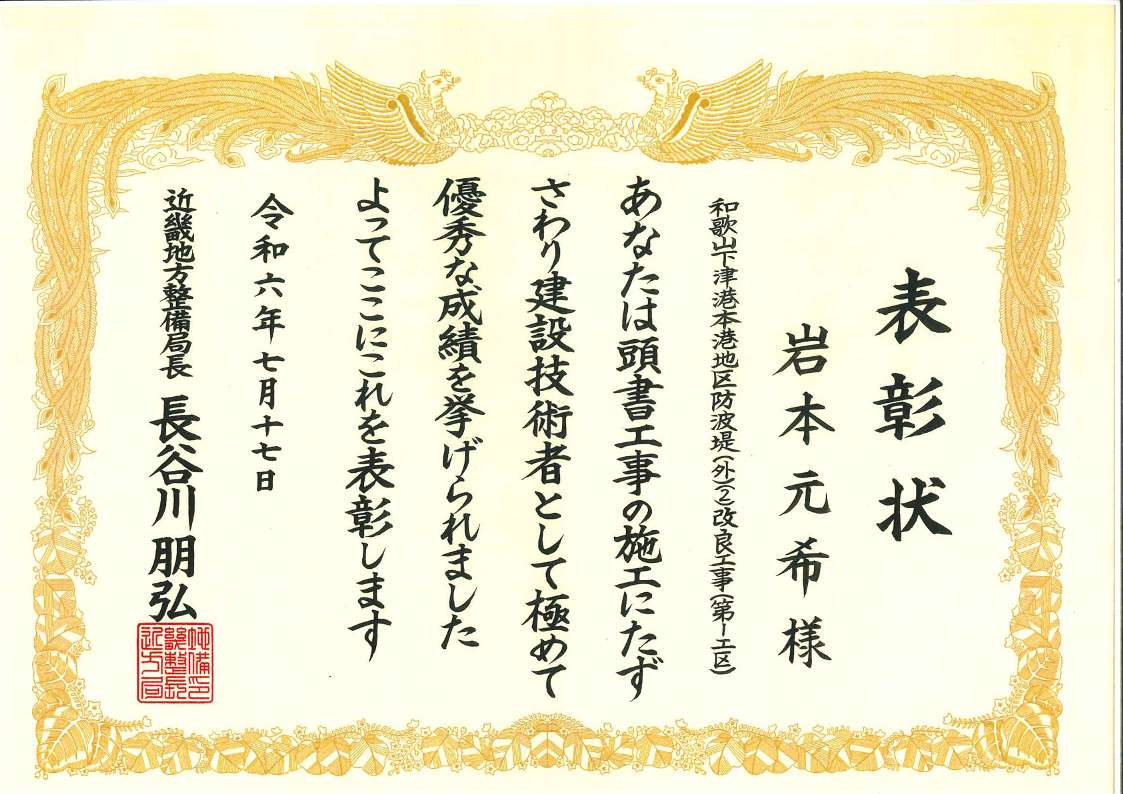 表彰状
岩本元希様
和歌山下津港本港地区防波堤(外)(2)改良工事(第一工区)
あなたは頭書工事の施工にたず
さわり建設技術者として極めて
優秀な成績を挙げられました
よってここにこれを表彰します
令和六年七月十七日
近畿地方整備局長 長谷川朋弘